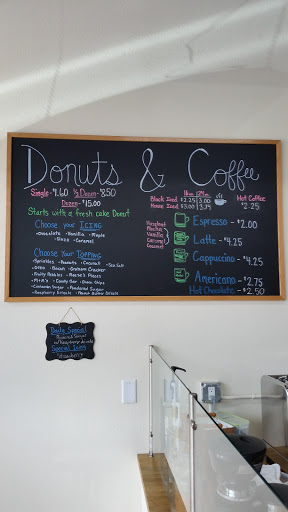 Donuts & Coffee
Single - $1.60 ½ Dozen - $8.50
Dozen - $15.00
Starts with a fresh cake Donut
Choose your ICING
Chocolate • Vanilla • Maple
Glaze • Caramel
Choose Your TOPPING
Sprinkles • Peanuts • Coconut • Sea Salt
Oreo • Bacon • Graham Cracker
Fruity Pebbles • Reese's Pieces
M&M's • Candy Bar • Choc Chips
Cinnamon Sugar • Powdered Sugar
Raspberry Drizzle • Peanut Butter Drizzle
16oz 24oz
Black Iced $2.25 3.00
House Iced $3.00 3.75
Hot Coffee
$2.25
Hazelnut
Mocha
Vanilla
Caramel
Espresso - $2.00
Latte - $4.25
Cappuccino - $4.25
Americano - $2.75
Hot Chocolate - $2.50
Special
Special Icing
Strawberry